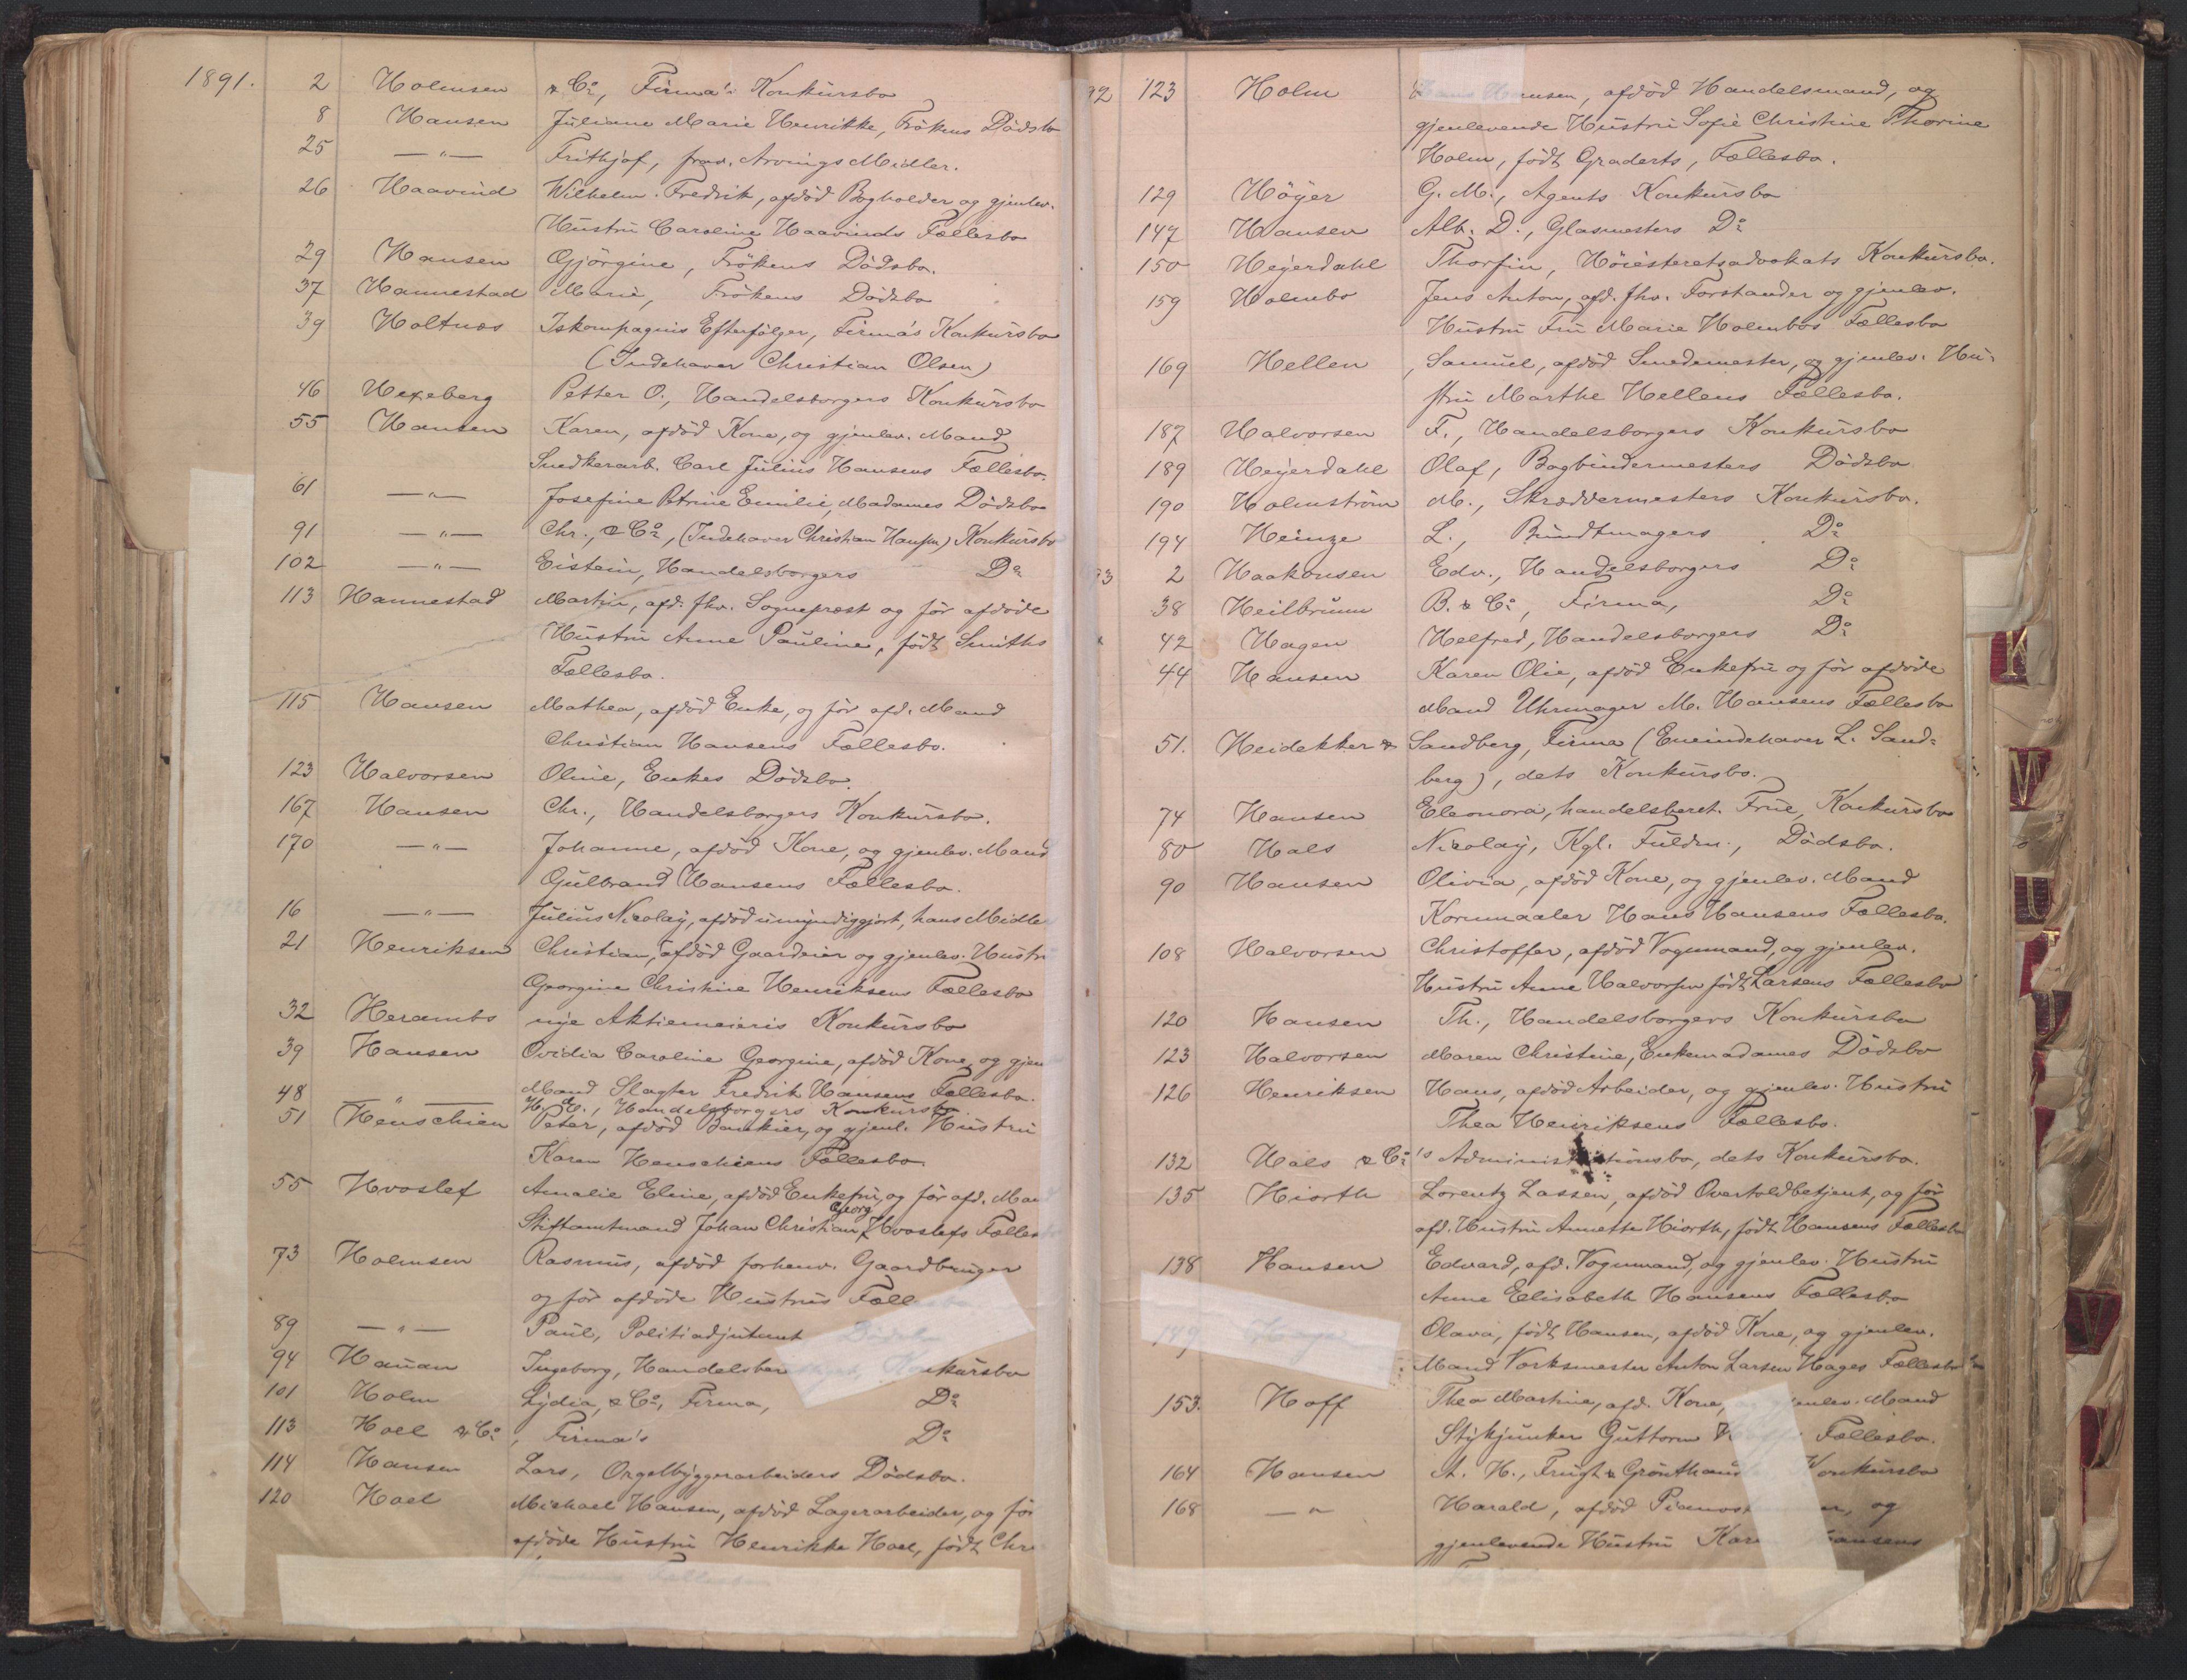 1891. 2 Holmsen & Co, Firma's Konkursbo
8 Hansen Juliane Marie Henrikke, Frökens Dödsbo
25 — " — Frithjof, frav. Arvings Midler.
26 Haavind Wilhelm Fredrik, afdöd Bogholder og gjenlev.
Hustru Caroline Haavinds Fællesbo
29 Hansen Gjörgine, Frökens Dödsbo.
37 Hannestad Marie, Frökens Dödsbo
39 Holtnæs Iskompagnis Efterfølger, Firma's Konkursbo
(Indehaver Christian Olsen)
46 Hexeberg Petter O., Handelsborgers Konkursbo
55 Hansen Karen, afdöd Kone, og gjenlev. Mand
Snedkerarb. Carl Julius Hansens Fællesbo.
61 — " — Josefine Petrine Emilie, Madames Dödsbo
91 — " — Chr., & Co, (Indehaver Christian Hansen) Konkursbo
102 — " — Eistein, Handelsborgers Do
113 Hannestad Martin, afd. fhv. Sogneprest og för afdöde
Hustru Anne Pauline, födt Smiths
Fællesbo.
115 Hansen Mathea, afdöd Enke, og för afd. Mand
Christian Hansens Fællesbo.
123 Halvorsen Oline, Enkes Dödsbo.
167 Hansen Chr., Handelsborgers Konkursbo.
170 — " — Johanne, afdöd Kone, og gjenlev. Mand
Gulbrand Hansens Fællesbo.
16 — " — Julius Nicolay, afdöd umyndiggjort, hans Midle
21 Henriksen Christian, afdöd Gaardeier og gjenlev. Hustr
Georgine Christine Henriksens Fællesbo
32 Herambs nye Aktiemeieris Konkursbo
39 Hansen Ovidia Caroline Georgine, afdöd Kone, og gjen
Mand Slagter Fredrik Hansens Fællesbo.
48 — " — H. E., Handelsborgers Konkursbo
51 Henschien Peter, afdöd Bankier, og gjenl. Hustru
Karen Henschiens Fællesbo
55 Hvoslef Amalie Eline, afdöd Enkefru, og för afd. Man
Stiftamtmand Johan Christian Georg Hvoslefs Fælles
73 Holmsen Rasmus, afdöd forhenv. Gaardbruger
og för afdöde Hustrus Fæll
89 — " — Paul, Politiadjutant Dödsbo
94 Hauan Ingeborg, Handelsber Konkursbo
101 Holm Lydia, & Co, Firma, Do
113 Hoel & Co, Firma's Do
114 Hansen Lars, Orgelbyggerarbeiders Dödsbo.
120 Hoel Michael Hansen, afdöd Lagerarbeider, og för
afdöde Hustru Henrikke Hoel, födt Chr
Fællesbo
92 123 Holm Hans Hansen, afdöd Handelsmand, og
gjenlevende Hustru Sofie Christine Thorine
Holm, födt Graderts, Fællesbo.
129 Höyer G. M., Agents Konkursbo
147 Hansen Alb. D., Glasmesters Do
150 Heyerdahl Thorfin, Höiesteretsadvokats Konkursbo.
159 Holmbo Jens Anton, afd. fhv. Forstander og gjenlev.
Hustru Fru Marie Holmbos Fællesbo
169 Hellen, Samuel, afdöd Smedemester, og gjenlev. Hu-
stru Marthe Hellens Fællesbo.
187 Halvorsen F., Handelsborgers Konkursbo
189 Heyerdahl Olaf, Bogbindermesters Dödsbo
190 Holmström M., Skræddermesters Konkursbo.
194 Heinze L., Bundtmagers Do
93 2 Haakonsen Edv., Handelsborgers Do
38 Heilbrunn B. & Co, Firma, Do
42 Hagen Helfred, Handelsborgers Do
44 Hansen Karen Olie, afdöd Enkefru og för afdöde
Mand Uhrmager M. Hansens Fællesbo
51. Heidekker & Sandberg, Firma (Eneindehaver L. Sand-
berg), dets Konkursbo.
74 Hansen Eleonora, handelsberet. Frue, Konkursbo
80 Hals Nicolay, Kgl. Fuldm., Dödsbo.
90 Hansen Olivia, afdöd Kone, og gjenlev. Mand
Kornmaaler Hans Hansens Fællesbo.
108 Halvorsen Christoffer, afdöd Vognmand, og gjenlev.
Hustru Anne Halvorsen födt Larsens Fællesbo
120 Hansen Th., Handelsborgers Konkursbo
123 Halvorsen Maren Christine, Enkemadames Dödsbo
126 Henriksen Hans, afdöd Arbeider, og gjenlev. Hustru
Thea Henriksens Fællesbo.
132 Hals & Co's Administrationsbo, dets Konkursbo.
135 Hiorth Lorentz Lassen, afdöd Overtoldbetjent, og för
afd. Hustru Annette Hiorth, födt Hansens Fællesbo
138 Hansen Edvard, afd. Vognmand, og gjenlev. Hustru
Anne Elisabeth Hansens Fællesbo
149 Olava, födt Hansen, afdöd Kone, og gjenlev.
Mand Værksmester Anton Larsen Hages Fællesbo
153. Hoff Thea Martine, afd. Kone, og gjenlev. Mand
Stykjunker Guttorm Hoffs Fællesbo.
164 Hansen A. H., Frugt & Grönthand Konkursbo
168 — " Harald, afdöd og
gjenlevende Hustru Kar Hansens
K
M
U
V